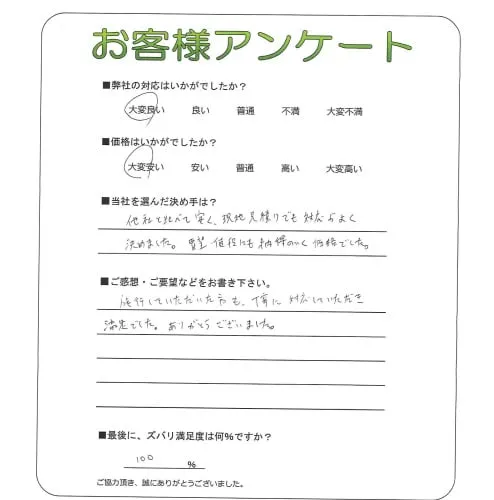 お客様アンケート
■弊社の対応はいかがでしたか?
大変良い 良い 普通 不満 大変不満
■価格はいかがでしたか?
大変安い 安い 普通 高い 大変高い
■当社を選んだ決め手は?
他社と比べて安く、現地見積りでも対応がよく
決めました。買望値段にも納得のいく価格でした。
■ご感想・ご要望などをお書き下さい。
施行していただいた方も、丁寧に対応していただき
満足でした。ありがとうございました。
■最後に、ズバリ満足度は何%ですか?
100 %
ご協力頂き、誠にありがとうございました。